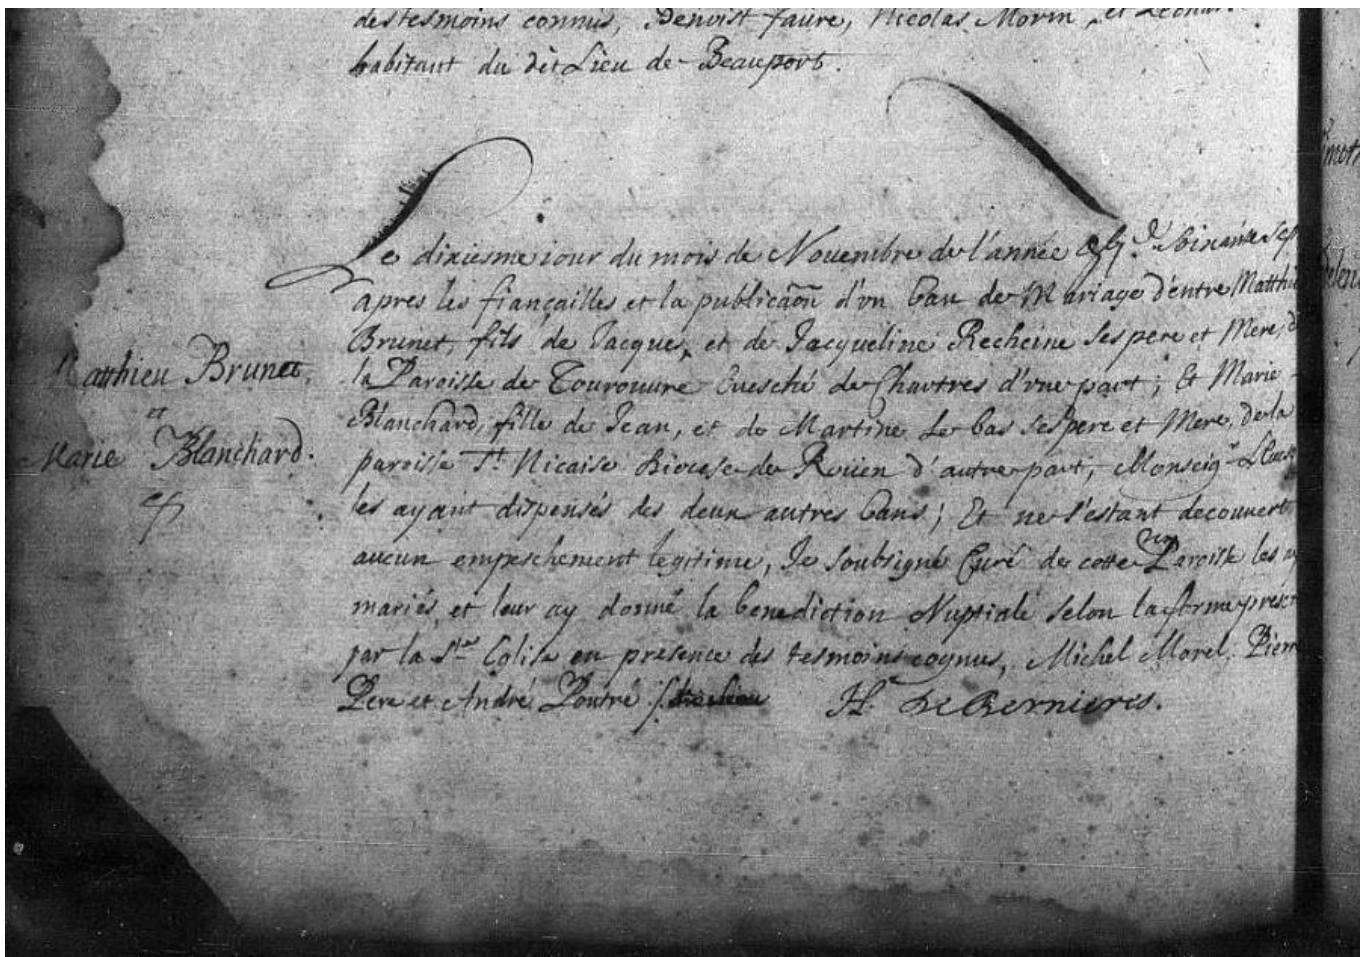 des tesmoins connus, Benoist faure, Nicolas Morin, et
habitant du dit Lieu de Beauport.
Le dixiesme iour du mois de Nouembre de l'année soixante sept
apres les fiançailles et la publicãon d'vn ban de Mariage d'entre Matthieu
Brunet, fils de Jacques, et de Jacqueline Recheine ses pere et Mere, d
la Paroisse de Tourouure Euesché de Chartres d'vne part; Et Marie
Blanchard, fille de Jean, et de Martine Le bas ses pere et Mere, de la
paroisse St. Nicaise Diocese de Roüen d'autre part; Monseigr
les ayant dispensés des deux autres bans; Et ne s'estant decouuert
aucun empeschement legitime, Je soubsigné Curé de cette Paroisse les ay
mariés, et leur ay donné la benediction Nuptiale selon la forme prescr
par la Ste Eglise en presence des tesmoins cognus, Michel Morel, Pierre
Pere et André Poutré H. de Bernieres.
Matthieu Brunet
et
Marie Blanchard.